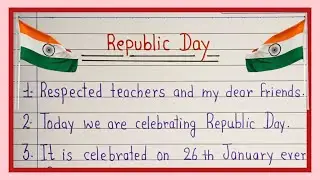 Republic Day
1. Respected teachers and my dear friends.
2. Today we are celebrating Republic Day.
3. It is celebrated on 26th January ever